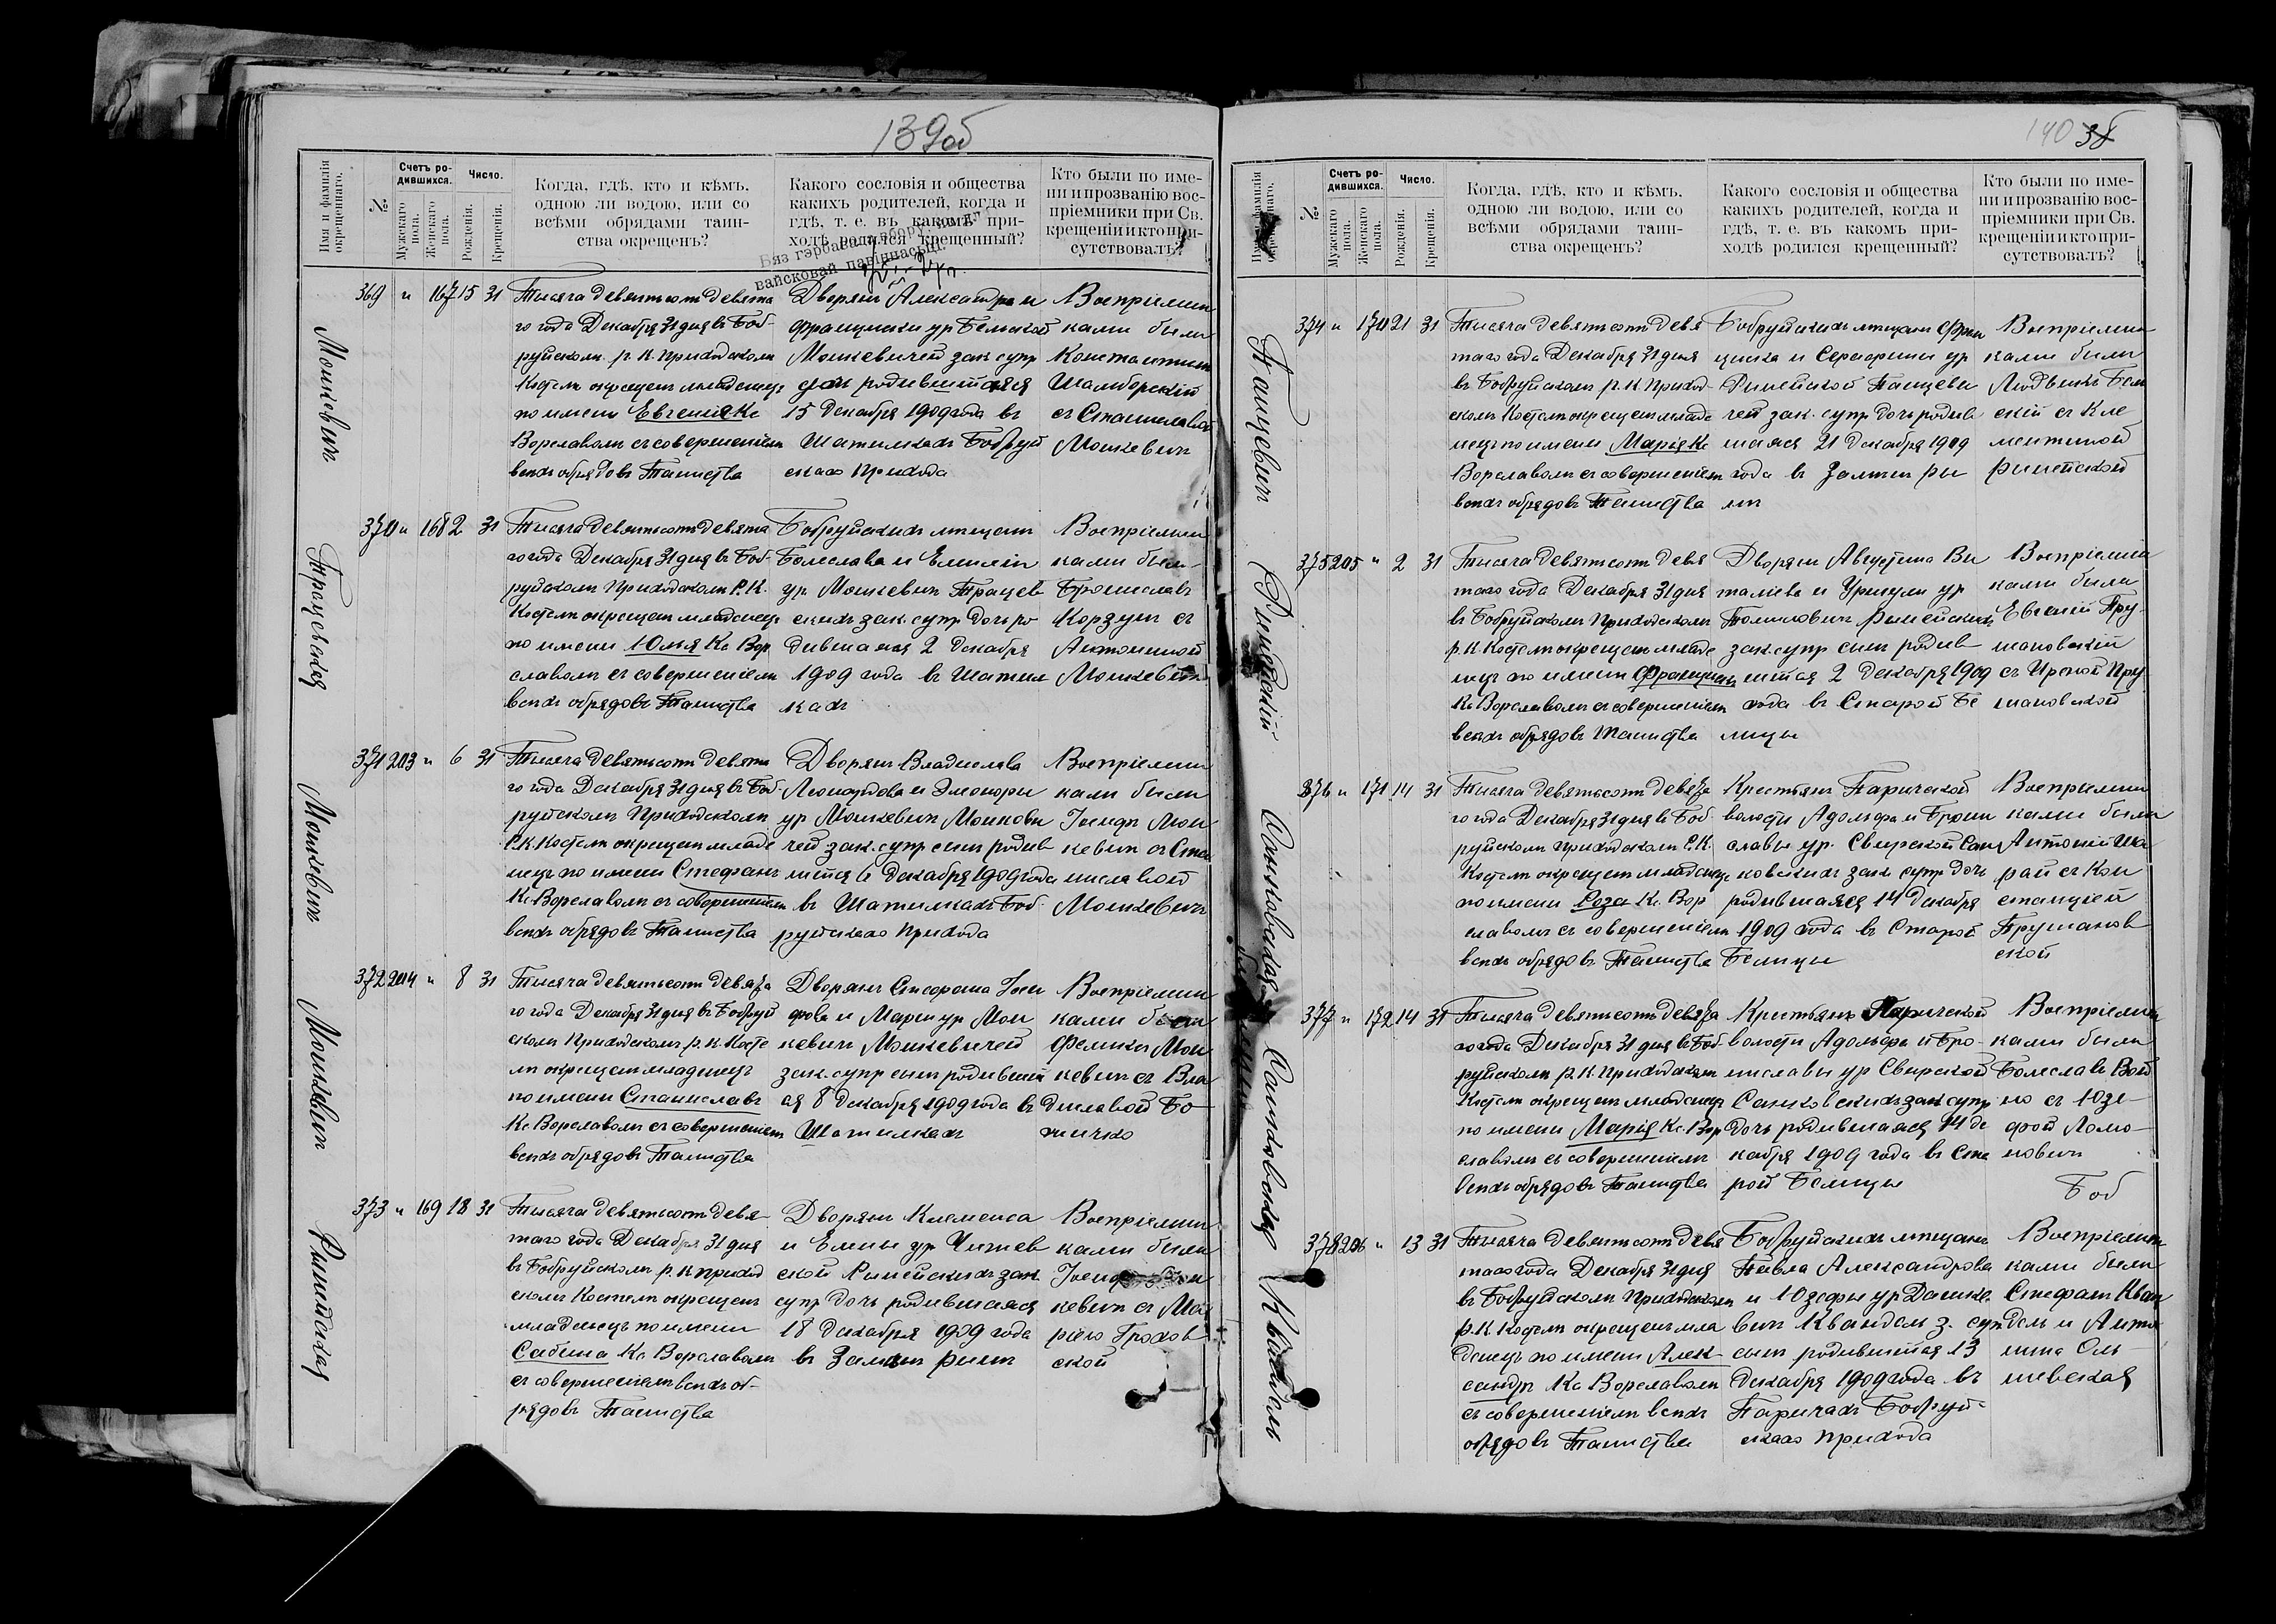 139об
Имя и фамилія окрещеннаго.
№
Счетъ родившихся.
Мужескаго пола.
Женскаго пола.
Число.
Рожденія.
Крещенія.
Когда, гдѣ, кто и кѣмъ,
одною ли водою, или со
всѣми обрядами таин-
ства окрещенъ?
Какого сословія и общества
какихъ родителей, когда и
гдѣ, т. е. въ какомъ при-
ходѣ родился крещенный?
Кто были по име-
ни и прозванію вос-
пріемники при Св.
крещеніи и кто при-
сутствовалъ?
Бяз гэрбавага збору
вайсковай павіннасці.
Мошкевичъ
369 " 167 15 31
Тысяча девятьсотъ девята
го года Декабря 31 дня въ Боб-
руйскомъ р. К. Приходскомъ
Костелѣ окрещенъ младенецъ
по имени Евгенія Кс.
Ворславомъ съ совершеніемъ
всѣхъ обрядовъ Таинства
Дворянъ Александра и
Францишки ур Бельской
Мошкевичей зак супр
дочь родившаяся
15 Декабря 1909 года въ
Шатилкахъ Бобруй
скаго Прихода
Воспріемни
ками были
Константинъ
Шамборскій
съ Станиславой
Мошкевичъ
Трацевская
370 " 168 2 31
Тысяча девятьсотъ девята
го года Декабря 31 дня въ Боб-
руйскомъ Приходскомъ Р. К.
Костелѣ окрещенъ младенецъ
по имени Юлія Кс Вор
славомъ съ совершеніемъ
всѣхъ обрядовъ Таинства
Бобруйскихъ мѣщанъ
Болеслава и Емиліи
ур. Мошкевичъ Трацев
скихъ зак. супр. дочь ро
дившаяся 2 Декабря
1909 года въ Шатил
кахъ
Воспріемни
ками были
Брониславъ
Корзунъ съ
Антониной
Мошкевичъ
Мошкевичъ
371 203 " 6 31
Тысяча девятьсотъ девята
го года Декабря 31 дня въ Боб-
руйскомъ Приходскомъ
Р. К. Костелѣ окрещенъ младе
нецъ по имени Стефанъ
Кс. Ворславомъ съ совершеніемъ
всѣхъ обрядовъ Таинства
Дворянъ Владислава
Леонардова и Элеоноры
ур Мошкевичъ Мошкеви
чей зак. супр сынъ родив
шійся 6 Декабря 1909 года
въ Шатилкахъ Боб
руйскаго Прихода
Воспріемни
ками были
Іосифъ Мош
кевичъ съ Ста
ниславой
Мошкевичъ
Мошкевичъ
372 204 " 8 31
Тысяча девятьсотъ девята
го года Декабря 31 дня въ Бобруй
скомъ Приходскомъ р. К. Косте
лѣ окрещенъ младенецъ
по имени Станиславъ
Кс. Ворславомъ съ совершеніемъ
всѣхъ обрядовъ Таинства
Дворянъ Стефана Іоси
фова и Маріи ур Мош
кевичъ Мошкевичей
зак. супр сынъ родившій
ся 8 Декабря 1909 года въ
Шатилкахъ
Воспріемни
ками были
Феликсъ Мош
кевичъ съ Вла
диславой Бо-
жичко
Римейская
373 " 169 18 31
Тысяча девятьсотъ девя-
таго года Декабря 31 дня
въ Бобруйскомъ р. К приход
скомъ Костелѣ окрещенъ
младенецъ по имени
Сабина Кс Ворславомъ
съ совершеніемъ всѣхъ об-
рядовъ Таинства
Дворянъ Клеменса
и Елены ур
ской Римейскихъ зак
супр дочь родившаяся
18 Декабря 1909 года
въ
Воспріемни
ками были
Іосифъ
кевичъ съ Ма
ріею Грохов
ской
140
Имя и фамилія окрещеннаго.
№
Счетъ ро-
дившихся.
Мужескаго пола.
Женскаго пола.
Число.
Рожденія.
Крещенія.
Когда, гдѣ, кто и кѣмъ,
одною ли водою, или со
всѣми обрядами таин-
ства окрещенъ?
Какого сословія и общества
какихъ родителей, когда и
гдѣ, т. е. въ какомъ при-
ходѣ родился крещенный?
Кто были по име-
ни и прозванію вос-
пріемники при Св.
крещеніи и кто при-
сутствовалъ?
Пацевичъ
374 " 170 21 31
Тысяча девятьсотъ девя
таго года Декабря 31 дня
въ Бобруйскомъ р. К Приход-
скомъ Костелѣ окрещенъ младе
нецъ по имени Марія Кс
Ворславомъ съ совершеніемъ
всѣхъ обрядовъ Таинства
Бобруйскихъ мѣщанъ Фран
цишка и Серафины ур
Римейской Пацеви
чей зак. супр дочь родив
шаяся 21 Декабря 1909
года въ
Воспріемни
ками были
Людвикъ Бел
скій съ Кле
ментиной
Римейской
Римейскій
375 205 " 2 31
Тысяча девятьсотъ девя
таго года Декабря 31 дня
въ Бобруйскомъ Приходскомъ
р. К. Костелѣ окрещенъ младе
нецъ по имени Францишекъ
Кс Ворславомъ съ совершеніемъ
всѣхъ обрядовъ Таинства
Дворянъ Августина Ви
таліева и Уршули ур
Толиловичъ Римейскихъ
зак супр сынъ родив
шійся 2 Декабря 1909
года въ Старой Бе
лицы
Воспріемни
ками были
Евгеній Пру-
шановскій
съ Иреной Пру
шановской
Саньковская
376 " 171 14 31
Тысяча девятьсотъ девята
го года Декабря 31 дня въ Боб
руйскомъ Приходскомъ Р. К.
Костелѣ окрещенъ младенецъ
по имени Роза Кс. Вор
славомъ съ совершеніемъ
всѣхъ обрядовъ Таинства
Крестьянъ Паричской
волости Адольфа и Брони
славы ур. Свирской Сан
ковскихъ зак супр дочь
родившаяся 14 Декабря
1909 года въ Старой
Белицы
Воспріемни
ками были
Антоній Ша
рай съ Кон
станціей
Прушанов
ской
Саньковская
377 " 172 14 31
Тысяча девятьсотъ девята
го года Декабря 31 дня въ Боб-
руйскомъ р. К. Приходскомъ
Костелѣ окрещенъ младенецъ
по имени Марія Кс. Вор
славомъ съ совершеніемъ
всѣхъ обрядовъ Таинства
Крестьянъ Паричской
волости Адольфа и Бро-
ниславы ур Свирской
Санковскихъ зак супр
дочь родившаяся 14 Де
кабря 1909 года въ Ста
рой Белицы
Воспріемни
ками были
Болеславъ Вой
но съ Юзе-
фой Ломо-
новичъ
Боб
Квандель
378 206 " 13 31
Тысяча девятьсотъ девя
таго года Декабря 31 дня
въ Бобруйскомъ Приходскомъ
р. К. Костелѣ окрещенъ мла
денецъ по имени Алек-
сандръ Кс Ворславомъ
съ совершеніемъ всѣхъ
обрядовъ Таинства
Бобруйскихъ мѣщанъ
Павла Александрова
и Юзефы ур Дашке-
вичъ Квандель з. супр
сынъ родившійся 13
Декабря 1909 года въ
Паричахъ Бобруй-
скаго Прихода
Воспріемни
ками были
Стефанъ Кван
дель и Анто
нина Оль-
шевская